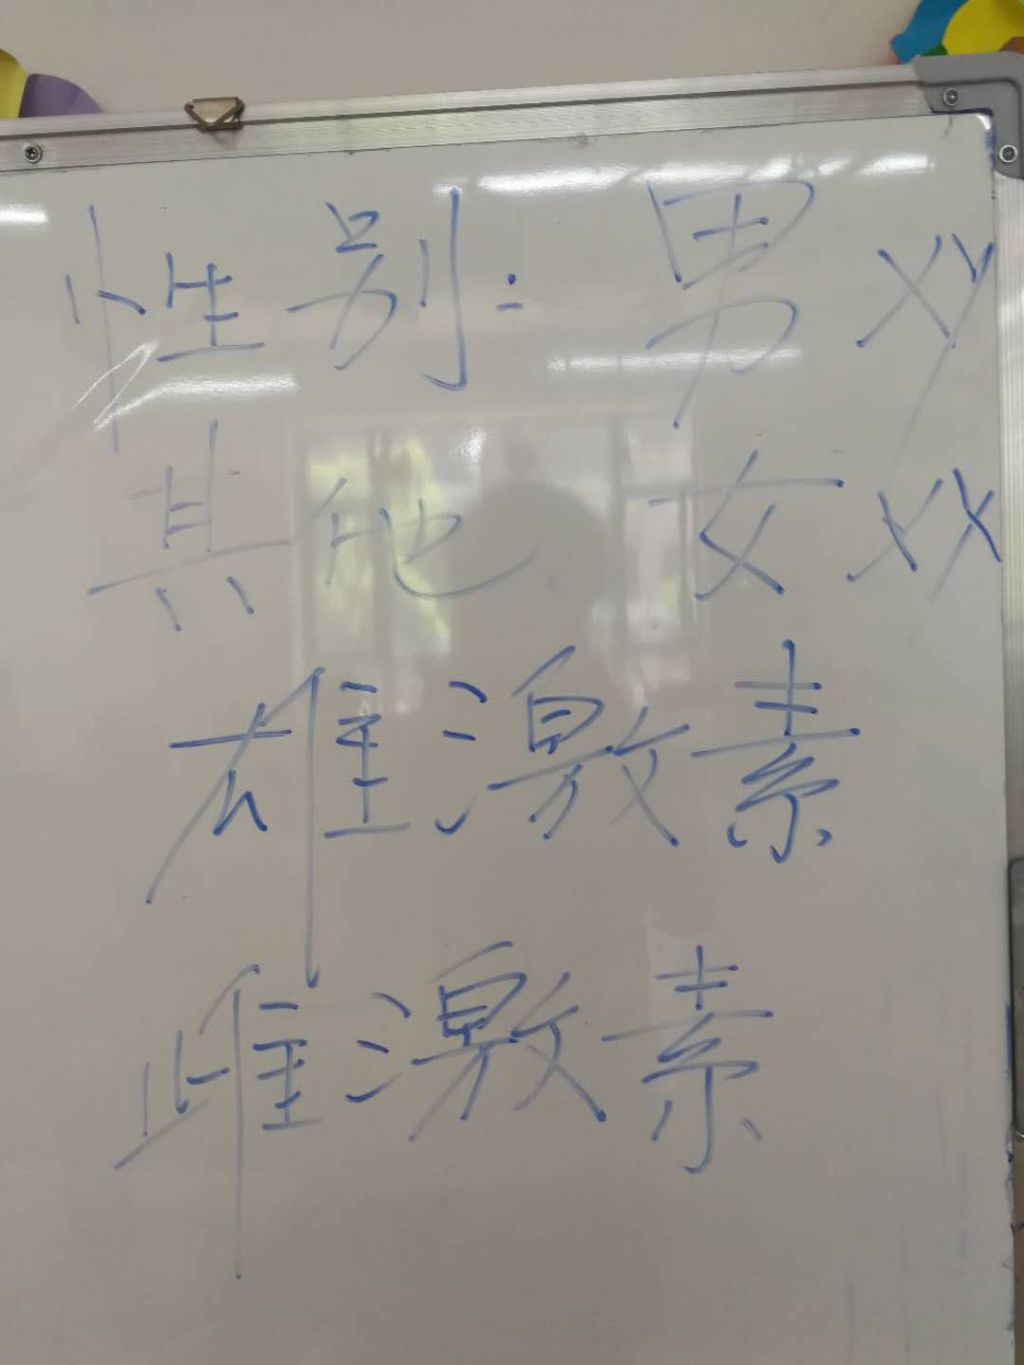 性别: 男 XY
其他 女 XX
雄激素
雌激素